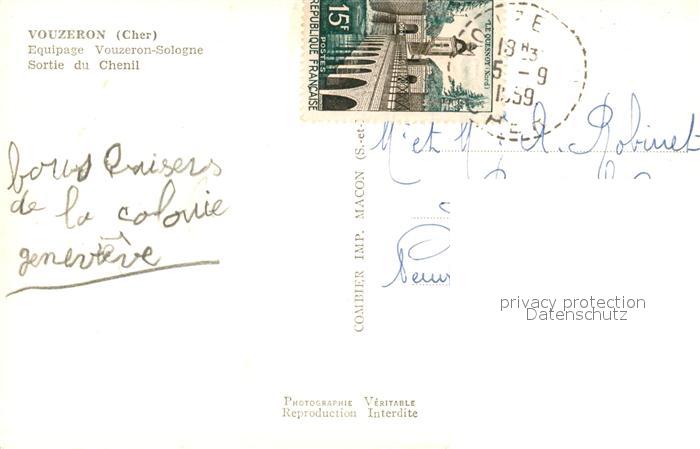 VOUZERON (Cher)
Equipage Vouzeron-Sologne
Sortie du Chenil
15F
POSTES
RÉPUBLIQUE FRANÇAISE
LE QUESNOY (Nord)
18 H3
5 - 9
1959
CHER
bons baisers
de la colonie
geneviève
COMBIER IMP. MACON (S.-et-
Mr et Mme A. Robinet
privacy protection
Datenschutz
PHOTOGRAPHIE VÉRITABLE
Reproduction Interdite